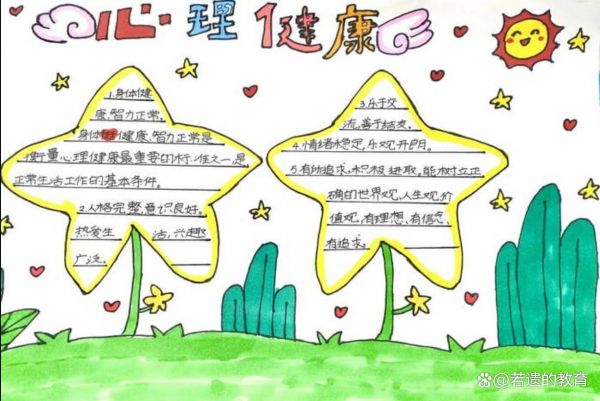 心理健康
1.身体健
康,智力正常。
身体健康、智力正常是
衡量心理健康最重要的标准之一,是
正常生活工作的基本条件。
2.人格完整,意识良好。
热爱生 活,兴趣
广泛。
3.乐于交
流,善于结友。
4.情绪稳定,乐观开朗。
5.有所追求,积极进取,能树立正
确的世界观、人生观、价
值观,有理想、有信念、
有追求。
若遗的教育